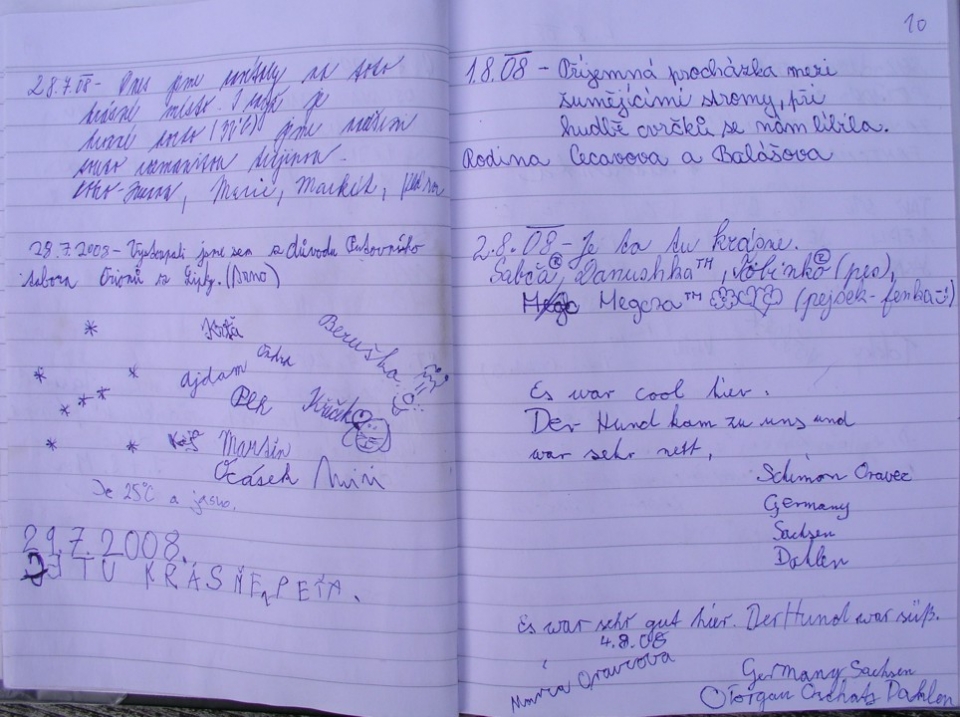 28.7.08 - Dnes jsme na toto
krásné místo. I když je
horké (32°C) jsme
, Marie, Markét,
28.7.2008 - Vystoupali jsme sem z důvodu Putovního
tabora Orionů z Líšky. (Brno)
Káťa
Beruška
Ondra
Ajdam
Petr
Křeček
Martin
Ocásek Miri
Je 25°C a jasno.
29.7.2008.
JE TU KRÁSŇE, PEŤA.
10
1.8.08 - Příjemná procházka mezi
šumějícími stromy, při
hudbě cvrčků se nám líbila.
Rodina Cecavova a Balášova
2.8.08 - Je to tu krásne.
Sabča®, Danushka™, Tobinko® (pes),
Megcza™ (pejsek - fenka :)
Es war cool hier.
Der Hund kam zu uns und
war sehr nett,
Schimon Oravec
Germany
Sachsen
Dahlen
Es war sehr gut hier. Der Hund war süß.
4.8.08
Maria Oravcova
Germany Sachsen
Torgau Oschatz Dahlen